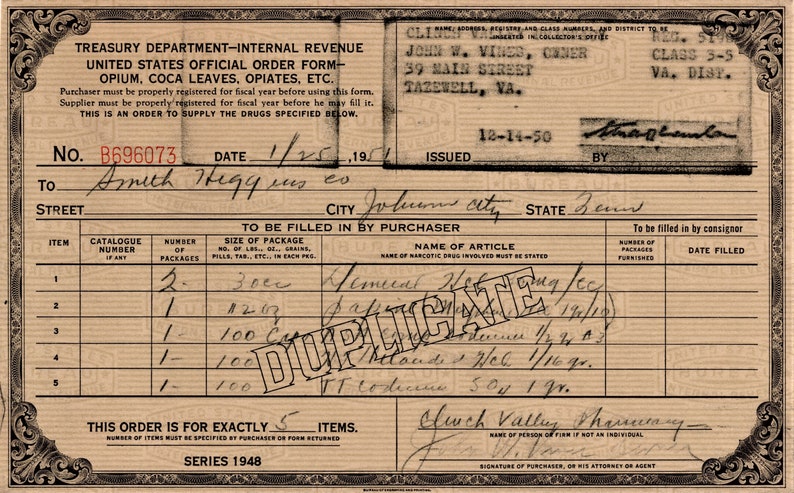 TREASURY DEPARTMENT—INTERNAL REVENUE
UNITED STATES OFFICIAL ORDER FORM—
OPIUM, COCA LEAVES, OPIATES, ETC.
Purchaser must be properly registered for fiscal year before using this form.
Supplier must be properly registered for fiscal year before he may fill it.
THIS IS AN ORDER TO SUPPLY THE DRUGS SPECIFIED BELOW.
NAME, ADDRESS, REGISTRY AND CLASS NUMBERS, AND DISTRICT TO BE
INSERTED IN COLLECTOR'S OFFICE
REG.
JOHN W. VINES, OWNER CLASS 3-5
39 MAIN STREET VA. DIST.
TAZEWELL, VA.
12-14-50
No. B696073 DATE 1/25, 1951 ISSUED BY
To Smith Higgins Co
STREET CITY Johnson City STATE Tenn
TO BE FILLED IN BY PURCHASER To be filled in by consignor
ITEM CATALOGUE NUMBER IF ANY NUMBER OF PACKAGES SIZE OF PACKAGE NO. OF LBS., OZ., GRAINS, PILLS, TAB., ETC., IN EACH PKG. NAME OF ARTICLE NAME OF NARCOTIC DRUG INVOLVED MUST BE STATED NUMBER OF PACKAGES FURNISHED DATE FILLED
1 2- 30cc Hcl /cc
2 1- oz
3 1- 100 Codeine 1/2 gr #3
4 1- 100 Hcl 1/16 gr.
5 1- 100 TT Codeine 1 gr.
DUPLICATE
THIS ORDER IS FOR EXACTLY 5 ITEMS.
NUMBER OF ITEMS MUST BE SPECIFIED BY PURCHASER OR FORM RETURNED
SERIES 1948
Clinch Valley Pharmacy
NAME OF PERSON OR FIRM IF NOT AN INDIVIDUAL
SIGNATURE OF PURCHASER, OR HIS ATTORNEY OR AGENT
BUREAU OF ENGRAVING AND PRINTING